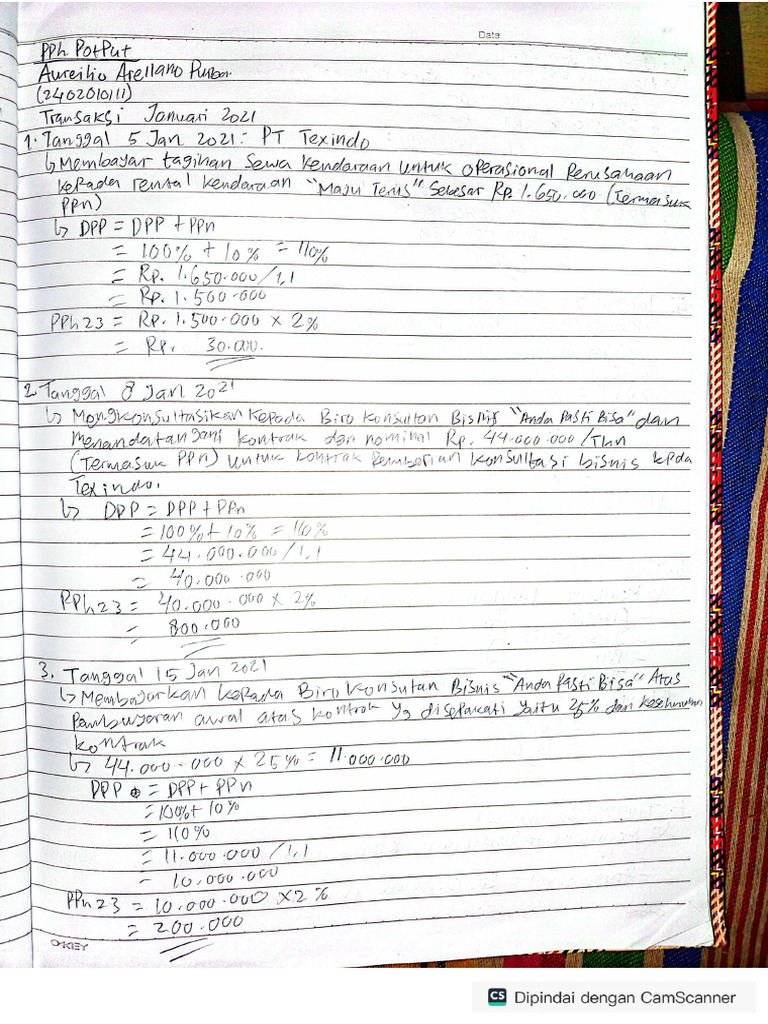 Date
PPh PotPut
Aureilio Arellano
(2402010111)
Transaksi Januari 2021
1. Tanggal 5 Jan 2021: PT Texindo
↳ Membayar tagihan sewa kendaraan untuk operasional Perusahaan
kepada rental kendaraan "Maju Terus" Sebesar Rp. 1.650.000 (Termasuk
PPn)
↳ DPP = DPP + PPn
= 100% + 10% = 110%
= Rp. 1.650.000/1,1
= Rp. 1.500.000
PPh23 = Rp. 1.500.000 x 2%
= Rp. 30.000.
2. Tanggal 8 Jan 2021
↳ Mengkonsultasikan kepada Biro Konsultan Bisnis "Anda Pasti Bisa" dan
menandatangani kontrak dgn nominal Rp. 44.000.000/Thn
(Termasuk PPn) untuk kontrak Pemberian konsultasi bisnis kpda
Texindo.
↳ DPP = DPP + PPn
= 100% + 10% = 110%
= 44.000.000/1,1
= 40.000.000
PPh23 = 40.000.000 x 2%
= 800.000
3. Tanggal 15 Jan 2021
↳ Membayarkan kepada Biro Konsutan Bisnis "Anda Pasti Bisa" Atas
Pembayaran awal atas kontrak yg disepakati yaitu 25% dari keseluruhan
kontrak
↳ 44.000.000 x 25% = 11.000.000
DPP = DPP + PPn
= 100% + 10%
= 110%
= 11.000.000/1,1
= 10.000.000
PPh23 = 10.000.000 x 2%
= 200.000
OKEY
CS Dipindai dengan CamScanner